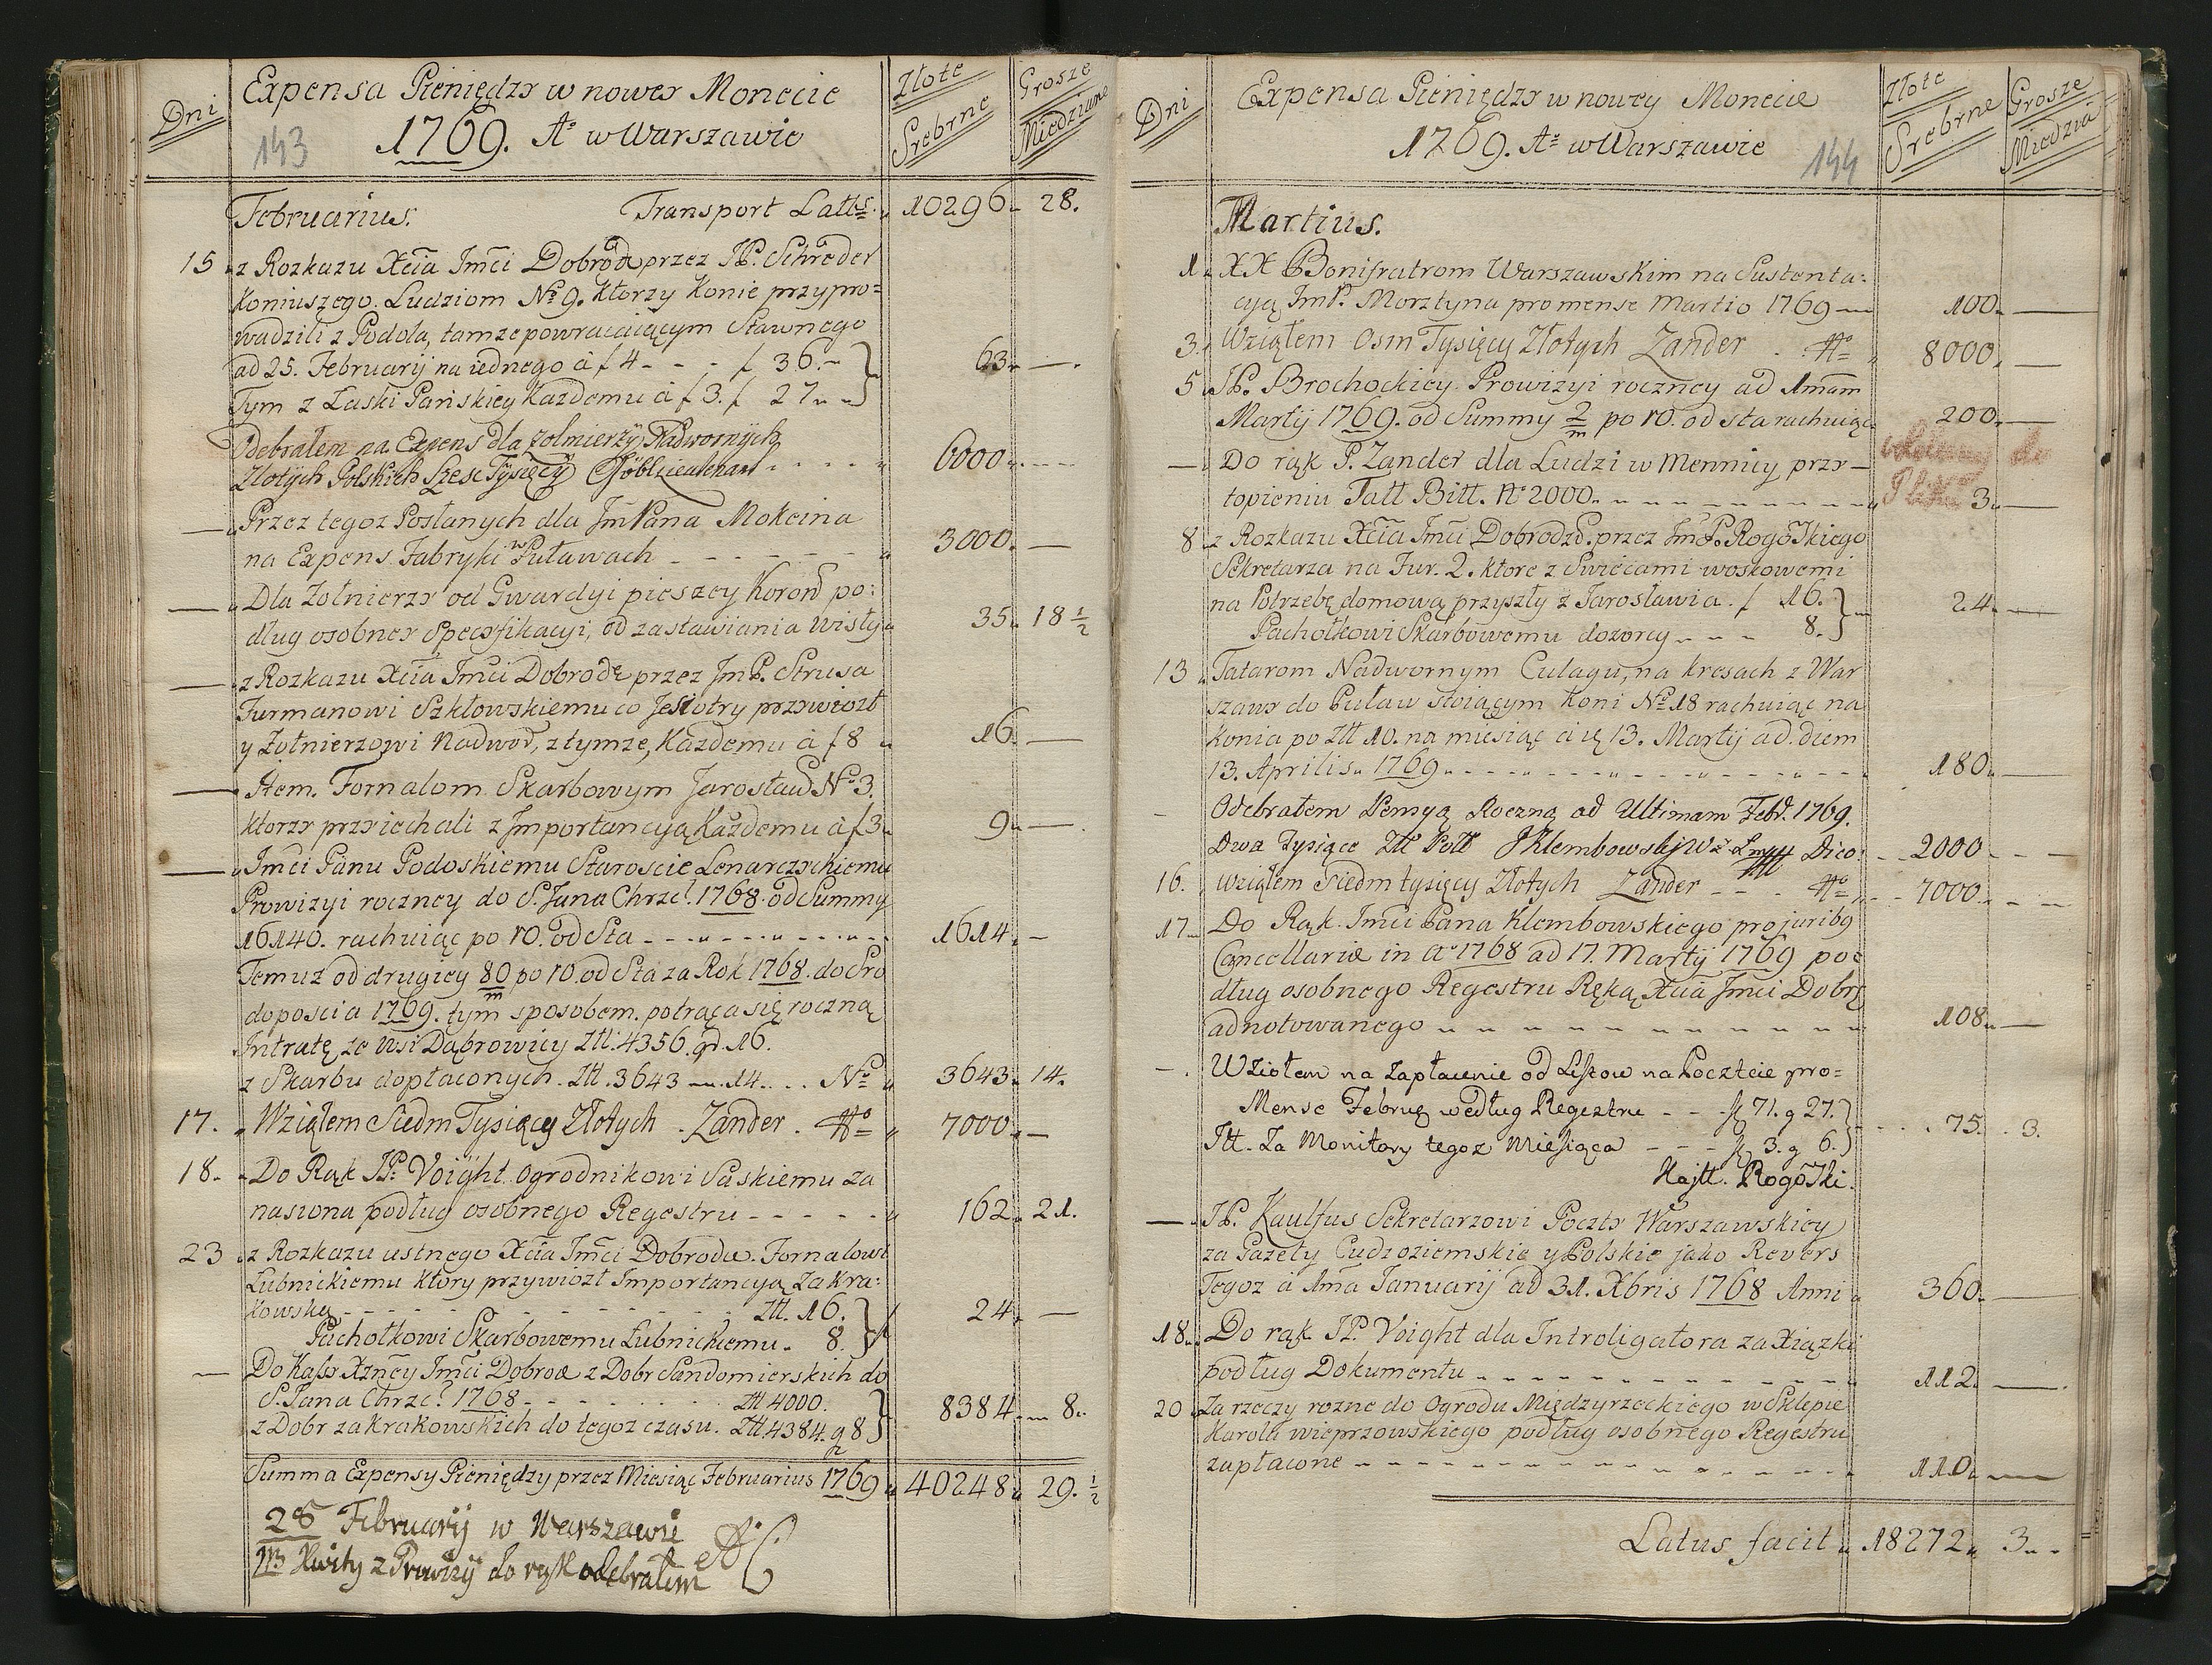 Dni
Expensa Pieniędzy w nowey Monecie
1769. Aº w Warszawie
143
Złote Srebrne
Grosze Miedziane
Februarius. Transport Latts. 10296 28.
15 z Rozkazu Xcia Jmci Dobrod przez JP. Schreder
Koniuszego. Ludziom Nº 9. ktorzy Konie przypro=
wadzili z Podola, tamze powracaiącym Stawnego
ad 25. Februarij na iednego à f 4 - - - f 36.
Tym z Łaski Pańskiey Kazdemu à f 3. f 27 } 63 —
Odebrałem na Expens dla zołnierzÿ Nadwornÿch
Złotÿch Polskich Szesc Tÿsięcÿ 6000
— Przez tegoz Posłanych dla Jm Pana Mokcina
na Expens Fabryki w Puławach 3000 —
— Dla Zołnierzy od Gwardyi pieszey Koron po:
dług osobney Specyfikacyi, od zastawiania Wisły 35. 18 ½
— z Rozkazu Xcia Jmci Dobrode przez JmP. Strusa
Furmanowi Szkłowskiemu co Jesiotry przywiozł
y Zołnierzowi Nadwor, z tymze, Kazdemu à f 8 16 —
— Item. Fornalom Skarbowym Jarosław Nº 3.
ktorzy przyiechali z Importancyą Kazdemu à f 3 9 —
— Jmci Panu Podoskiemu Staroscie Lenarczyckiemu
Prowizyi roczney do S. Jana Chrzc. 1768. od Summy
16140. rachuiąc po 10. od Sta 1614 —
Temuz od drugiey 80/m po 10. od Sta za Rok 1768. do Sro
doposcia 1769. tym sposobem. potrąca się roczną
Intratę ze Wsi Dąbrowicy Ztt. 4356. gr. 16.
z Skarbu dopłaconych. Ztt. 3643 14. Nº 3643. 14.
17. Wziąłem Siedm Tysięcy Złotych. Zander. 7000 —
18. Do Rąk JP. Voight. Ogrodnikowi Saskiemu za
nasiona podług osobnego Regestru 162. 21.
23 z Rozkazu ustnego Xcia Jmci Dobrodu. Fornalowi
Łubnickiemu ktory przywiozł Importancyą Zakra:
kowską Ztt. 16.
Pachołkowi Skarbowemu Łubnickiemu. 8. } 24 —
— Do Kassy Xzncy Jmci Dobrod z Dobr Sandomierskich do
S. Jana Chrzc. 1768 Ztt 4000.
z Dobr zakrakowskich do tegoz czasu. Ztt. 4384. g 8 } 8384. 8.
Summa Expensy Pieniędzy przez Miesiąc Februarius 1769 40248 29. ½
28 Februarij w Warszawie
Kwity z Prowizÿ do rąk odebrałem
Dni
Expensa Pieniędzy w nowey Monecie
1769. Aº w Warszawie
144
Złote Srebrne
Grosze Miedzia
Martius.
1. XX Bonifratrom Warszawskim na Sustenta:
cyą JmP. Morztyna pro mense Martio 1769 100. —
3. Wziąłem Osm Tysięcy Złotych Zander 8000. —
5 JP. Brochockiey. Prowizyi roczney ad 1mam
Martij 1769. od Summy 2/m po 10. od sta rachuiąc 200. —
— Do rąk P. Zander dla Ludzi w Mennicy przy
topieniu Tall Bitt. Nº 2000. 3. —
8 z Rozkazu Xcia Jmci Dobrodz. przez JmP. Rogoskiego
Sekretarza na Fur. 2. ktore z Swiecami woskowemi
na Potrzebę domową przyszły z Jarosławia. f 16.
Pachołkowi Skarbowemu dozorcy 8. } 24 —
13 Tatarom Nadwornym Culagu, na kresach z War
szawy do Puław stoiącym Koni Nº 18 rachuiąc na
Konia po Ztt 10. na miesiąc à 13. Martij ad diem
13. Aprilis 1769 180. —
Odebrałem Pensyą Roczną ad Ultimam Febr. 1769.
Dwa Tysiące Ztt Poll JKlembowskj 2000
16. Wziąłem Siedm tysięcy Złotych Zander 7000
17 Do Rąk Jmci Pana Klembowskiego pro juribg
Cancellariæ in Aº 1768 ad 17. Martij 1769 po
dług osobnego Regestru Ręką Xcia Jmci Dobrs
adnotowanego 108 —
Wziołem na Zapłacenie od Listow na Poczcie pro=
Mense Februa według Regestru f 71. g 27.
Itt. Za Monitory tegoz Miesiąca f 3. g 6. } 75. 3.
Kajtt. Rogoski.
— JP. Kaulfus Sekretarzowi Poczty Warszawskiey
za Gazety Cudzoziemskie y Polskie jako Revers
Tegoz à 1ma Januarij ad 31. Xbris 1768 Anni 360. —
18. Do rąk JP. Voight dla Introligatora za Xiązki
podług Dokumentu 112. —
20 Za rzeczy rozne do Ogrodu Międzyrzeckiego w Sklepie
Karola wieprzowskiego podług osobnego Regestru
zapłacone 110. —
Latus facit 18272 3.